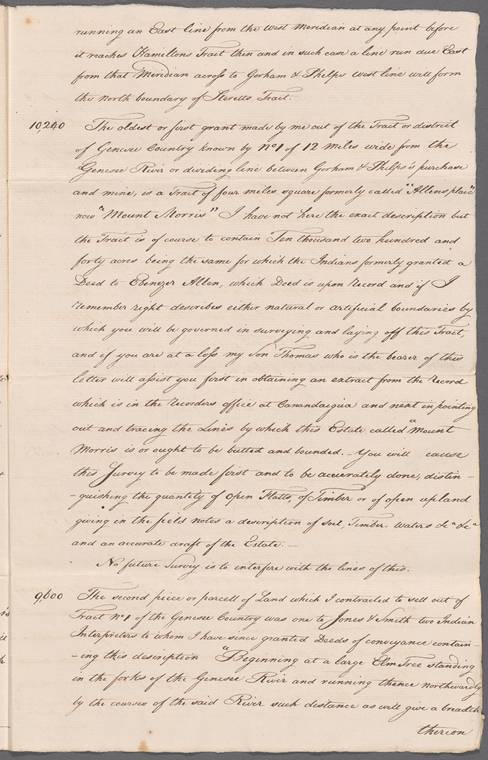 running an East line from the West Meridian at any point before
it reaches Hamiltons Tract then and in such case a line run due East
from that Meridian across to Gorham & Phelps west line will form
the North boundary of Steretts Tract.
10,240 The oldest or first grant made by me out of the Tract or district
of Genesee Country known by No 1 of 12 Miles wide from the
Genesee River or dividing line between Gorham & Phelps's purchase
and mine, is a Tract of four miles square formerly called "Allens place"
now "Mount Morris" I have not here the exact description but
the Tract is of course to contain Ten thousand two hundred and
forty acres being the same for which the Indians formerly granted a
Deed to Ebenezer Allen, which Deed is upon record and if I
remember right describes either natural or artificial boundaries by
which you will be governed in surveying and laying off this Tract,
and if you are at a loss my son Thomas who is the bearer of this
letter will assist you first in obtaining an extract from the record
which is in the recorders office at Canandaigua and next in pointing
out and tracing the Lines by which this Estate called "Mount
Morris is or ought to be butted and bounded. – You will cause
this Survey to be made first and to be accurately done, distin-
-guishing the quantity of open Flatts, of Timber or of open upland
giving in the field notes a description of soil, Timber waters &c &c
and an accurate draft of the Estate. –
No future Survey is to interfere with the lines of this.
9,600 The second piece or parcell of Land which I contracted to sell out of
Tract No 1 of the Genesee Country was one to Jones & Smith two Indian
Interpreters to whom I have since granted Deeds of conveyance contain-
-ing this description "Beginning at a large Elm Tree standing
in the forks of the Genesee River and running thence northwardly
by the courses of the said River such distance as will give a breadth
thereon